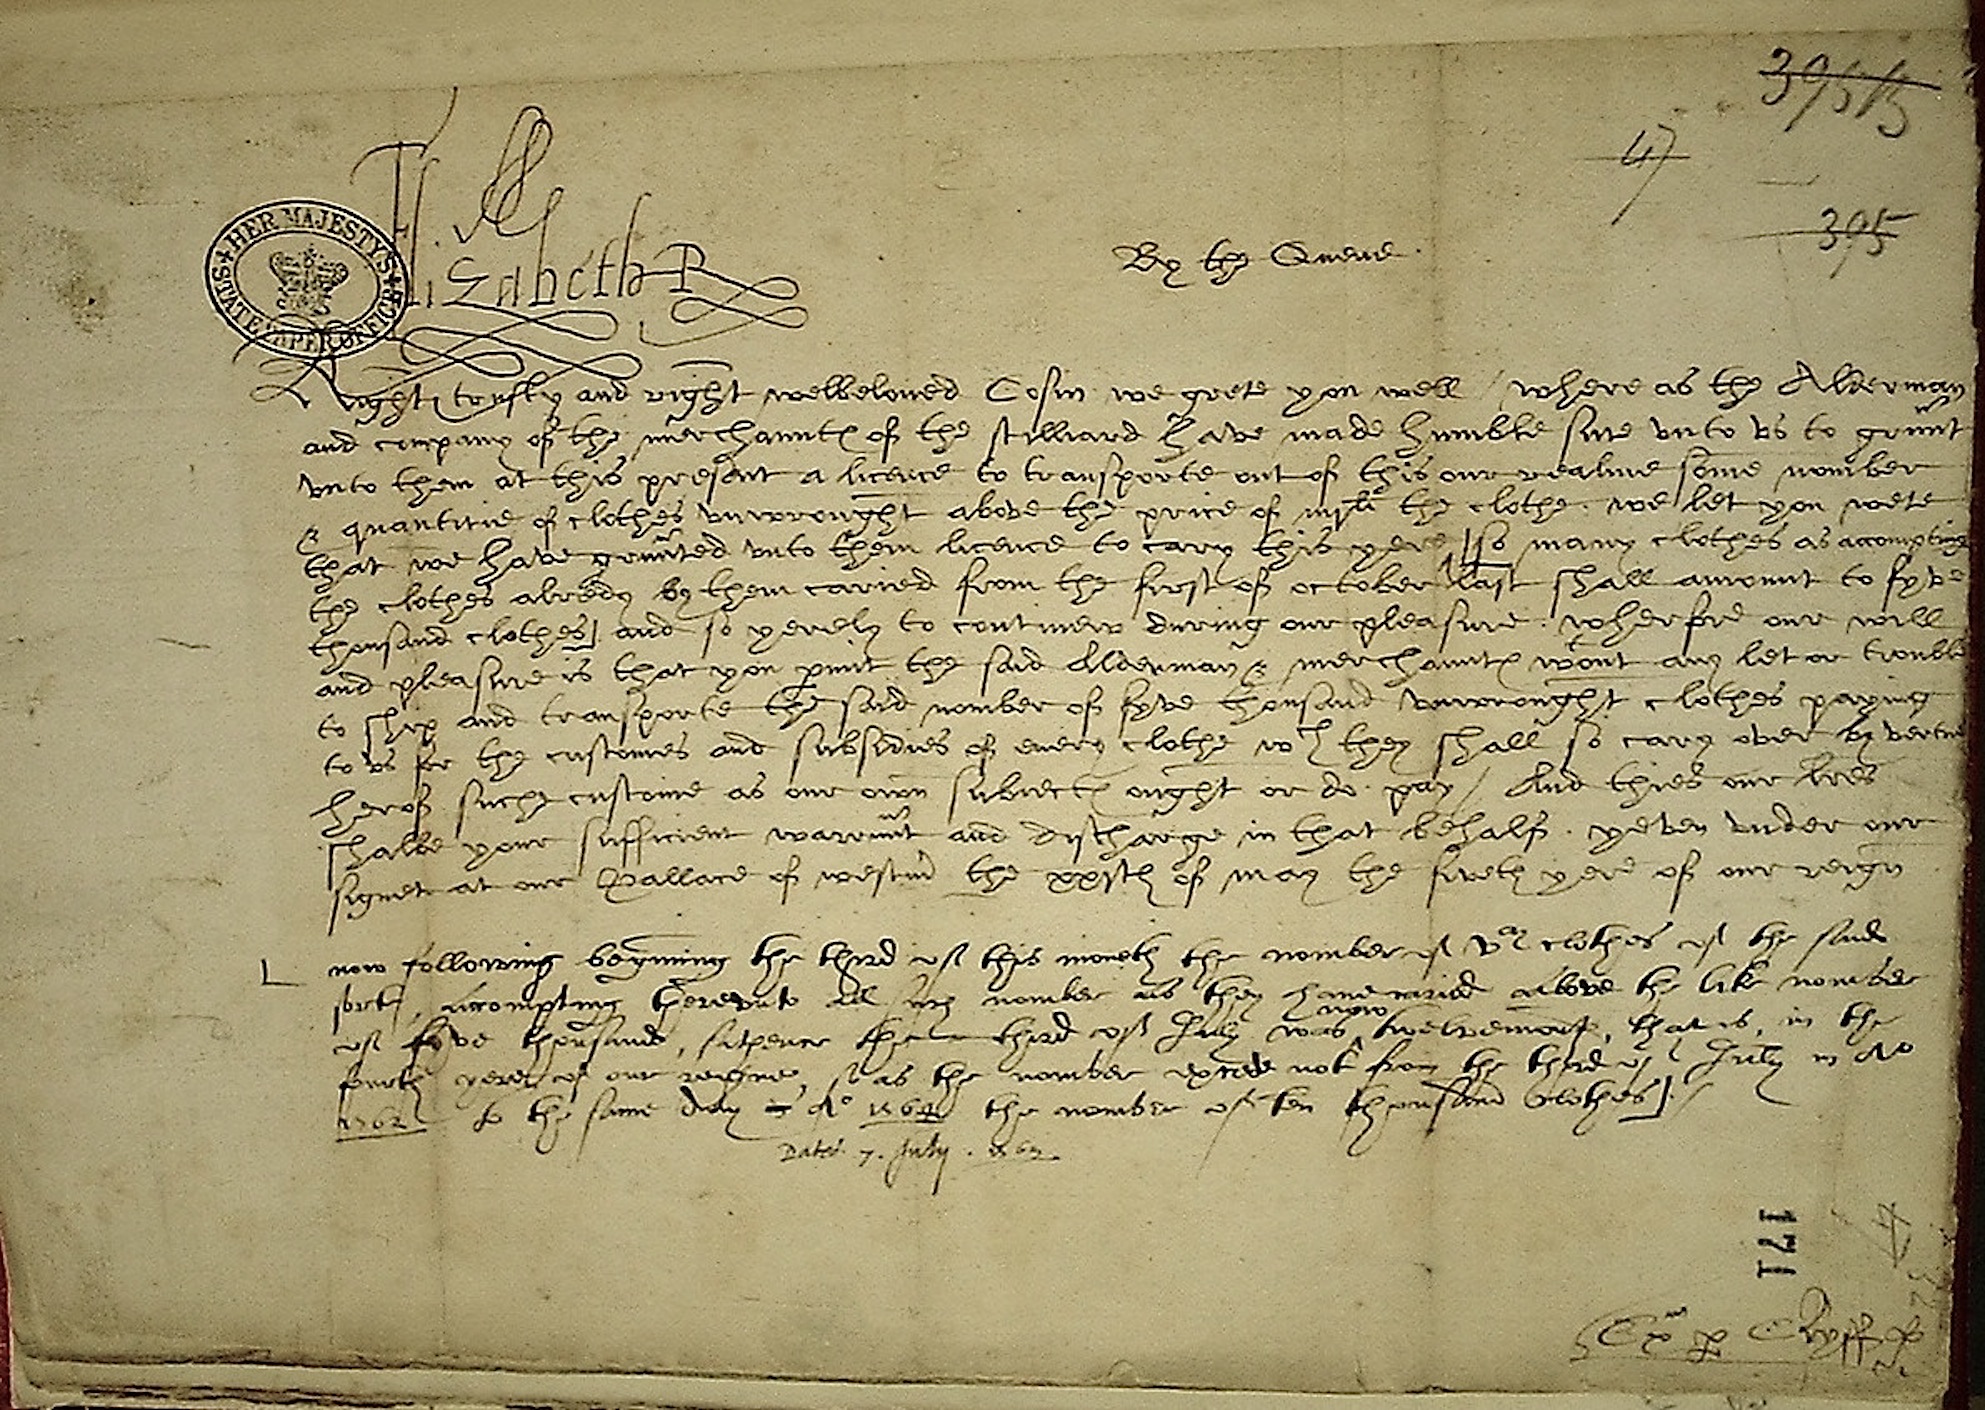 395 B
47
395
HER MAJESTY'S STATE PAPER OFFICE
Elizabeth R
By the Quene.
Right trusty and right welbeloued Cosin we grete you well / where as the Alderman
and company of the merchauntes of the stilliard have made humble sute vnto vs to graunt
vnto them at this present a licence to transporte out of this our realme some nomber
& quantitie of clothes vnwrought above the price of iiijli the clothe. we let you wete
that we have graunted vnto them licence to cary this yere [so many clothes as accompting
the clothes alredy by them caried from the first of october last shall amount to fyve
thousand clothes] and so yerely to continew during our pleasure. wherfore our will
and pleasure is that you pmit the said Alderman & merchauntes wtout any let or trouble
to ship and transporte the said nomber of fyve thousand vnwrought clothes paying
to vs for the customes and subsidies of euery clothe wch they shall so cary over by vertue
herof suche custome as our own subiectes ought or do pay / And thies our lres
shalbe your sufficient warraunt and discharge in that behalf. yeven vnder our
signet at our Pallace of westmr the of may the fiveth yere of our reign
now following begynning the third of this moneth the nomber of vM clothes of the said
sort, accompting therevnto all such nomber as they haue caried above the like nomber
of fyve thousand, sithence the third of July was now twelvemonth, that is, in the
fourth yere of our reigne, so as the nomber excede not from the third of July in Ao
1562 to the same day in Ao 1564 the nomber of ten thousand clothes]. /
Dated 7. July. 156
171
Ex p